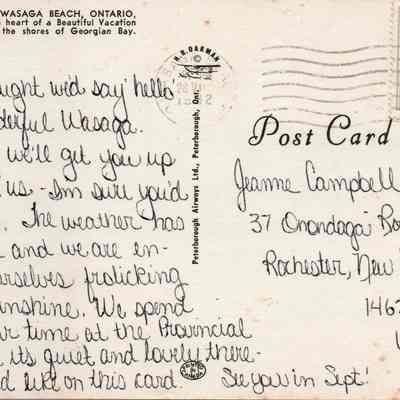 WASAGA BEACH, ONTARIO,
heart of a Beautiful Vacation
the shores of Georgian Bay.
ught we'd say "hello"
derful Wasaga.
we'll get you up
us - I'm sure you'd
The weather has
and we are en-
urselves frolicking
unshine. We spend
r time at the Provincial
its quiet and lovely there-
d like on this card.
H. R. OAKMAN
Peterborough Airways Ltd., Peterborough, Ont.
Post Card
Jeanne Campbell
37 Onondaga Ro
Rochester, New
146
See you in Sept!